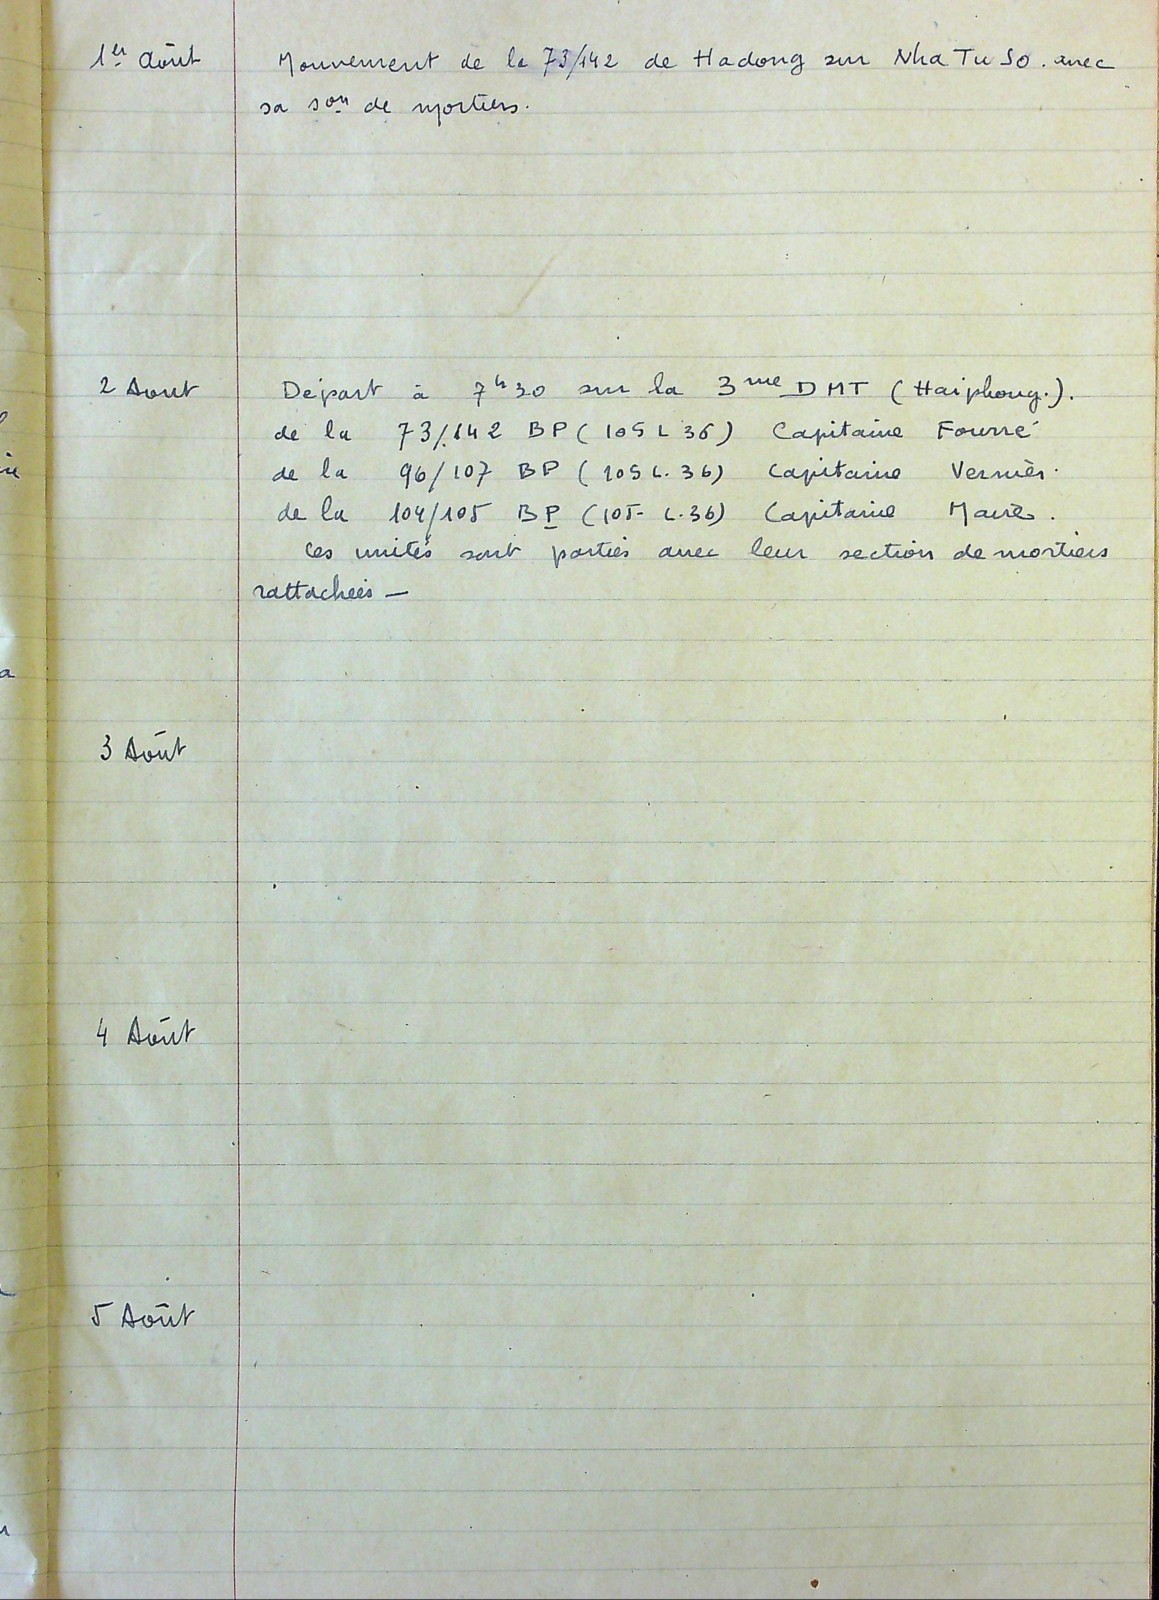 1er Août Mouvement de la 73/142 de Hadong sur Nha Tu So. avec
sa son de mortiers.
2 Aout Départ à 7h30 sur la 3me DMT (Haiphong.).
de la 73/142 BP (105 L 36) Capitaine Fourré
de la 96/107 BP (105 L. 36) Capitaine Verniès.
de la 104/105 BP (105- L.36) Capitaine
Ces unités sont parties avec leur section de mortiers
rattachées —
3 Août
4 Août
5 Août